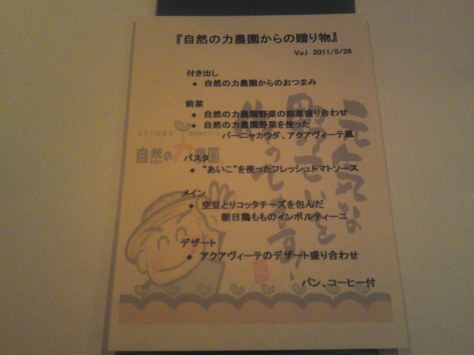 『自然の力農園からの贈り物』
Vol 2011/5/28
付き出し
● 自然の力農園からのおつまみ
前菜
● 自然の力農園野菜の前菜盛り合わせ
● 自然の力農園野菜を使った
バーニャカウダ、アクアヴィーテ風
自然の力農園
パスタ
● "あいこ"を使ったフレッシュトマトソース
メイン
● 空豆とリコッタチーズを包んだ
朝日鶏もものインボルティーニ
デザート
● アクアヴィーテのデザート盛り合わせ
パン、コーヒー付
元気な
野さいを
作ってます